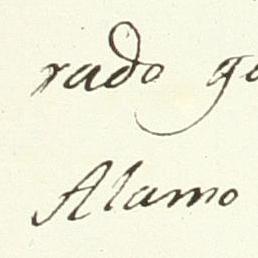 rado go
Alamo